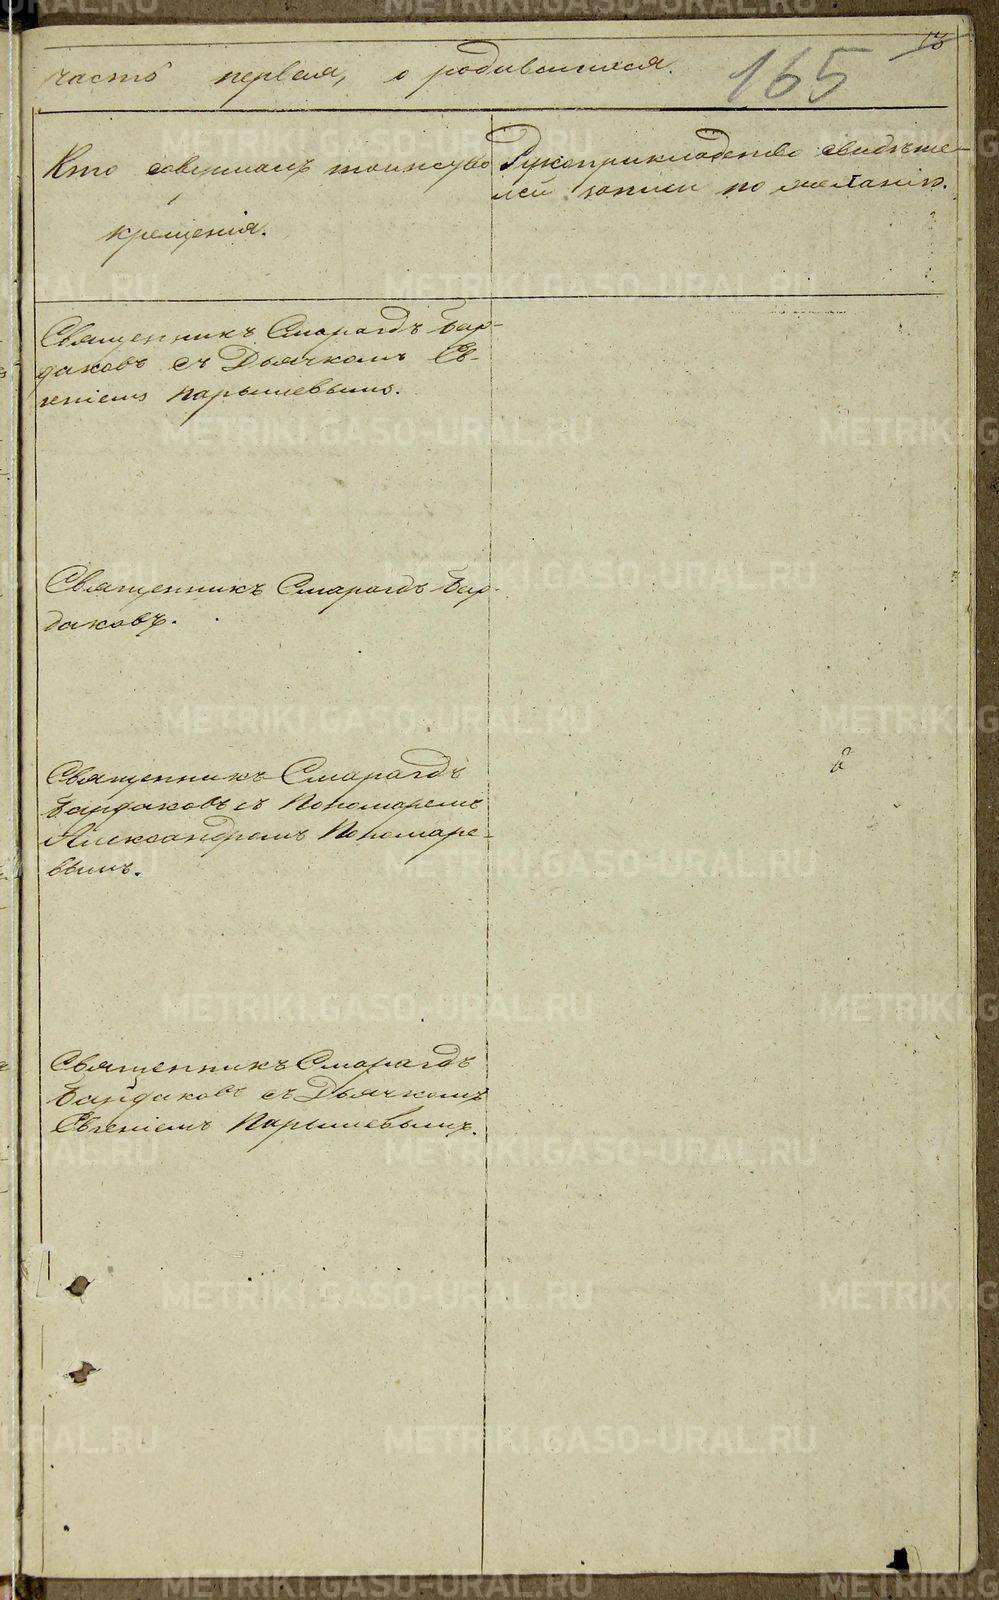 часть первая, о родившихся.
165
13
Кто совершалъ таинство
крещенія.
Рукоприкладство свидѣте-
лей записи по желанію.
Священникъ Смарагдъ Бар-
даковъ съ Дьячкомъ Ев-
геніемъ Парышевымъ.
Священникъ Смарагдъ Бар-
даковъ.
Священникъ Смарагдъ
Бардаковъ съ Пономаремъ
Александромъ Пономаре-
вымъ.
Священникъ Смарагдъ
Бардаковъ съ Дьячкомъ
Евгеніемъ Парышевымъ.
METRIKI.GASO-URAL.RU